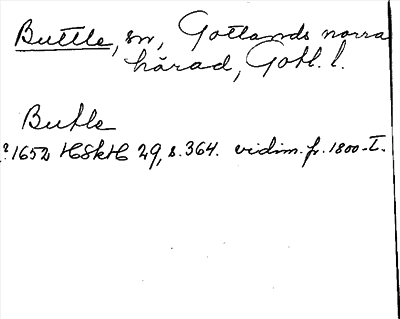 Buttle, sn, Gotlands norra
härad, Gotl. l.
Butle
?1652 HSkH 29, s. 364. vidim. fr. 1800-t.